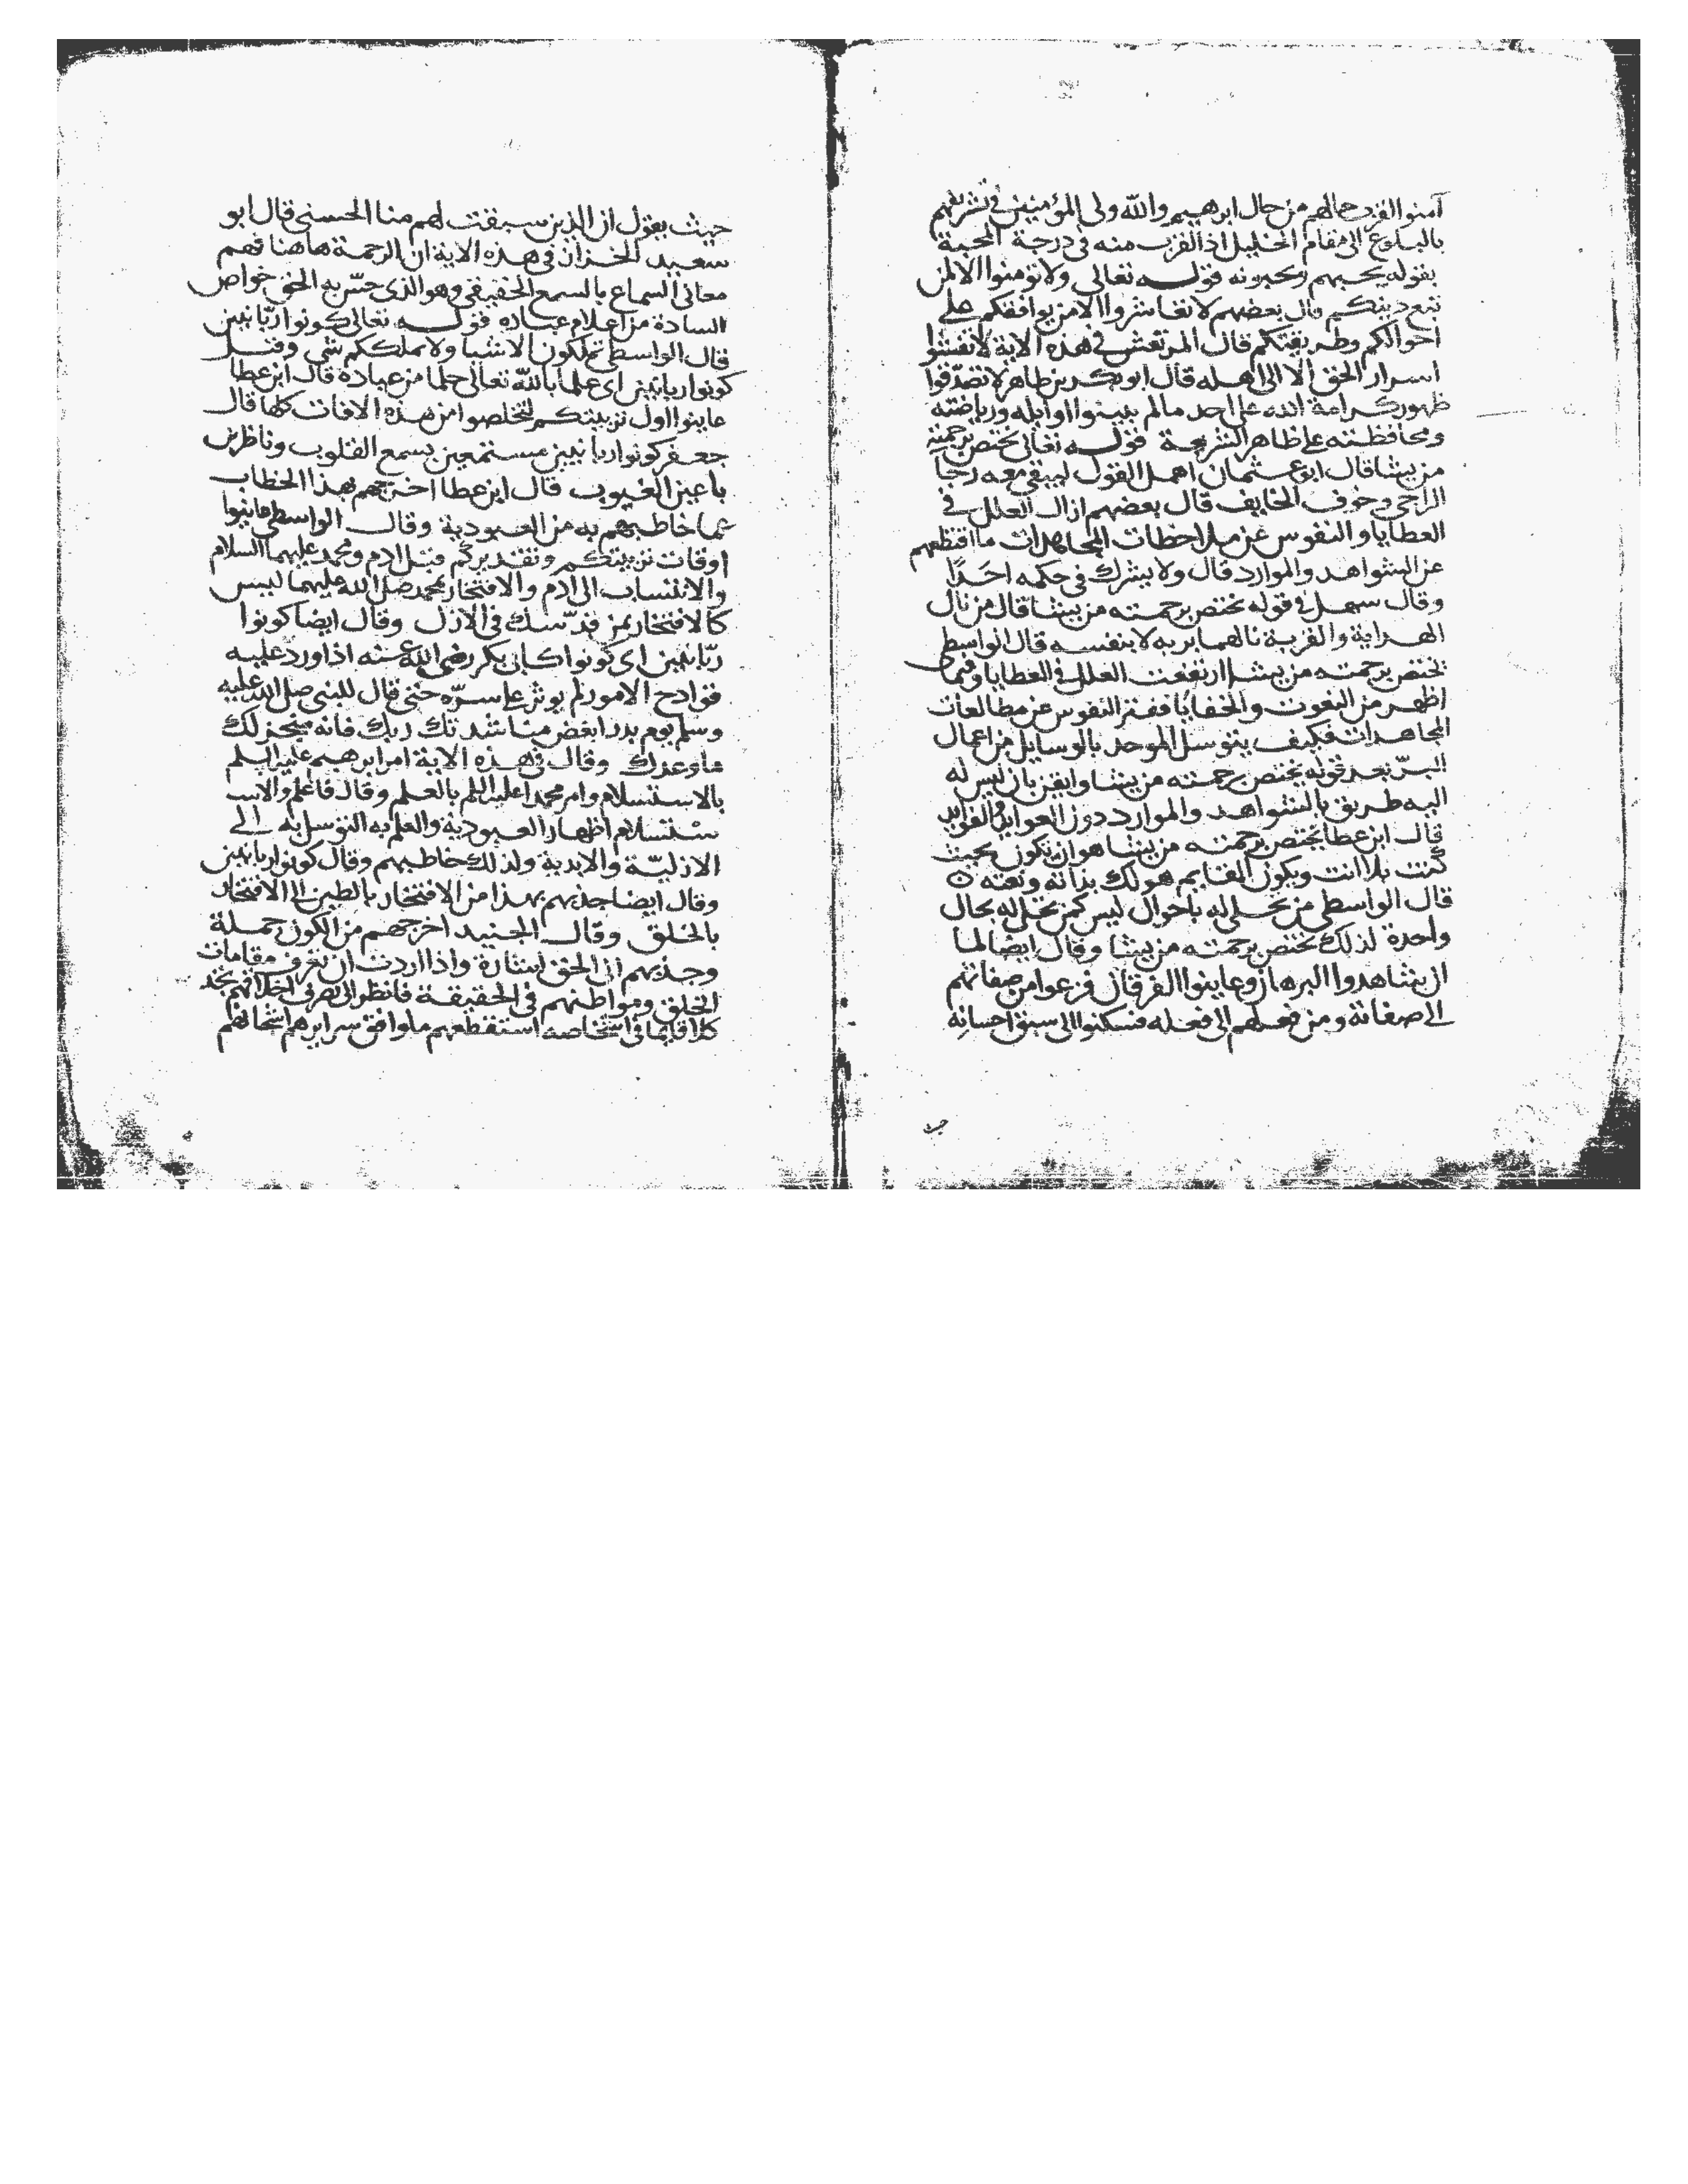 آمنوا القرب حالهم من حال ابرهيم والله ولى المؤمنين فى تشريفهم
بالبلوغ الى مقام الخليل اذ القرب منه فى درجة المحبة
بقوله يحبهم ويحبونه قوله تعالى ولا تؤمنوا الا لمن
تبع دينكم قال بعضهم لا تعاشروا الا من يوافقكم على
احوالكم وطريقتكم قال المرتعش فى هذه الاية لا تفشوا
اسرار الحق الا الى اهله قال ابو بكر بن طاهر لا تصدقوا
ظهور كرامة الله على احد مالم يبينوا اوايله ورياضته
ومحافظته على ظاهر الشريعة قوله تعالى يختص برحمته
من يشا قال ابو عثمان اهمل القول ليبقى معه رجا
الراجى وخوف الخايف قال بعضهم ازال العلل فى
العطايا والنفوس عن ملاحظات المجاهدات ما اقتطعهم
عن الشواهد والموارد قال ولا يشرك فى حكمه احدًا
وقال سهل فى قوله يختص برحمته من يشا قال من نال
الهداية والقربة نالهما بربه لا بنفسه قال الواسطى
يختص برحمته من يشا ارتفعت العلل فى العطايا وفيما
اظهر من النعوت والخفايا ففتر النفوس عن مطالعات
المجاهدات فكيف يتوسل الموحد بالوسايل من اعمال
البرّ بعد قوله يختص برحمته من يشا وايقن بان ليس له
اليه طريق بالشواهد والموارد دون العوايد والفوايد
قال ابن عطا يختص برحمته من يشا هو ان تكون بحيث
كنت بلا انت ويكون القايم هو لك بذاته ونعته ه
قال الواسطى من تجلى له باحوال ليس كمن تجلى له بحال
واحدة لذلك يختص برحمته من يشا وقال ايضا لما
ان شاهدوا البرهان وعاينوا الفرقان فزعوا من صفاتهم
الى صفاته ومن فعلهم الى فعله فسكنوا الى سبق احسانه
حيث
حيث يقول ان الذين سبقت لهم منا الحسنى قال ابو
سعيد الخراز فى هذه الاية ان الرحمة هاهنا فهم
معانى السماع بالسمع الحقيقى وهو الذى خسّ به الحق خواص
السادة من اعلام عباده قوله تعالى كونوا ربّانيين
قال الواسطى تملكون الاشيا ولا يملككم شى وقتل
كونوا ربانيين اى علما بالله تعالى حلما من عباده قال ابن عطا
عاينوا اول تربيتكم لتخلصوا من هذه الافات كلها قال
جعفر كونوا ربانيين مستمعين بسمع القلوب وناظرين
باعين الغيوب قال ابن عطا اخرجهم بهذا الخطاب
عما خاطبهم به من العبودية وقال الواسطى عاينوا
اوقات تربيتكم وتقديركم قبل ادم ومحمد عليهما السلام
والانتساب الى ادم والافتخار بمحمد صلى الله عليهما ليس
كالافتخار بمن قدّسك فى الازل وقال ايضا كونوا
ربّانيين اى كونوا كابى بكر رضى الله عنه اذا ورد عليه
فوادح الامور لم يوثر على سرّه حتى قال للنبى صلى الله عليه
وسلم يوم بدر ابغض مناشدتك ربك فانه منجز لك
ما وعدك وقال فى هذه الاية امر ابرهيم عليه السلم
بالاستسلام وامر محمدا عليه السلم بالعلم وقال فاعلم والاست
ستسلام اظهار العبودية والعلم به التوسل به الى
الازليّة والابدية ولذلك خاطبهم وقال كونوا ربانيين
وقال ايضا جذبهم بهذا من الافتخار بالطين الى الافتخار
بالخلق وقال الجنيد اخرجهم من الكون جملة
وجذبهم الى الحق اشارة واذا اردت ان تعرف مقامات
الخلق ومواطنهم فى الحقيقة فانظر الى تصرف اخلاقهم تجد
كلا قايما فى اشخاصه استقطعهم ما وافق سرايرهم اشخاصهم